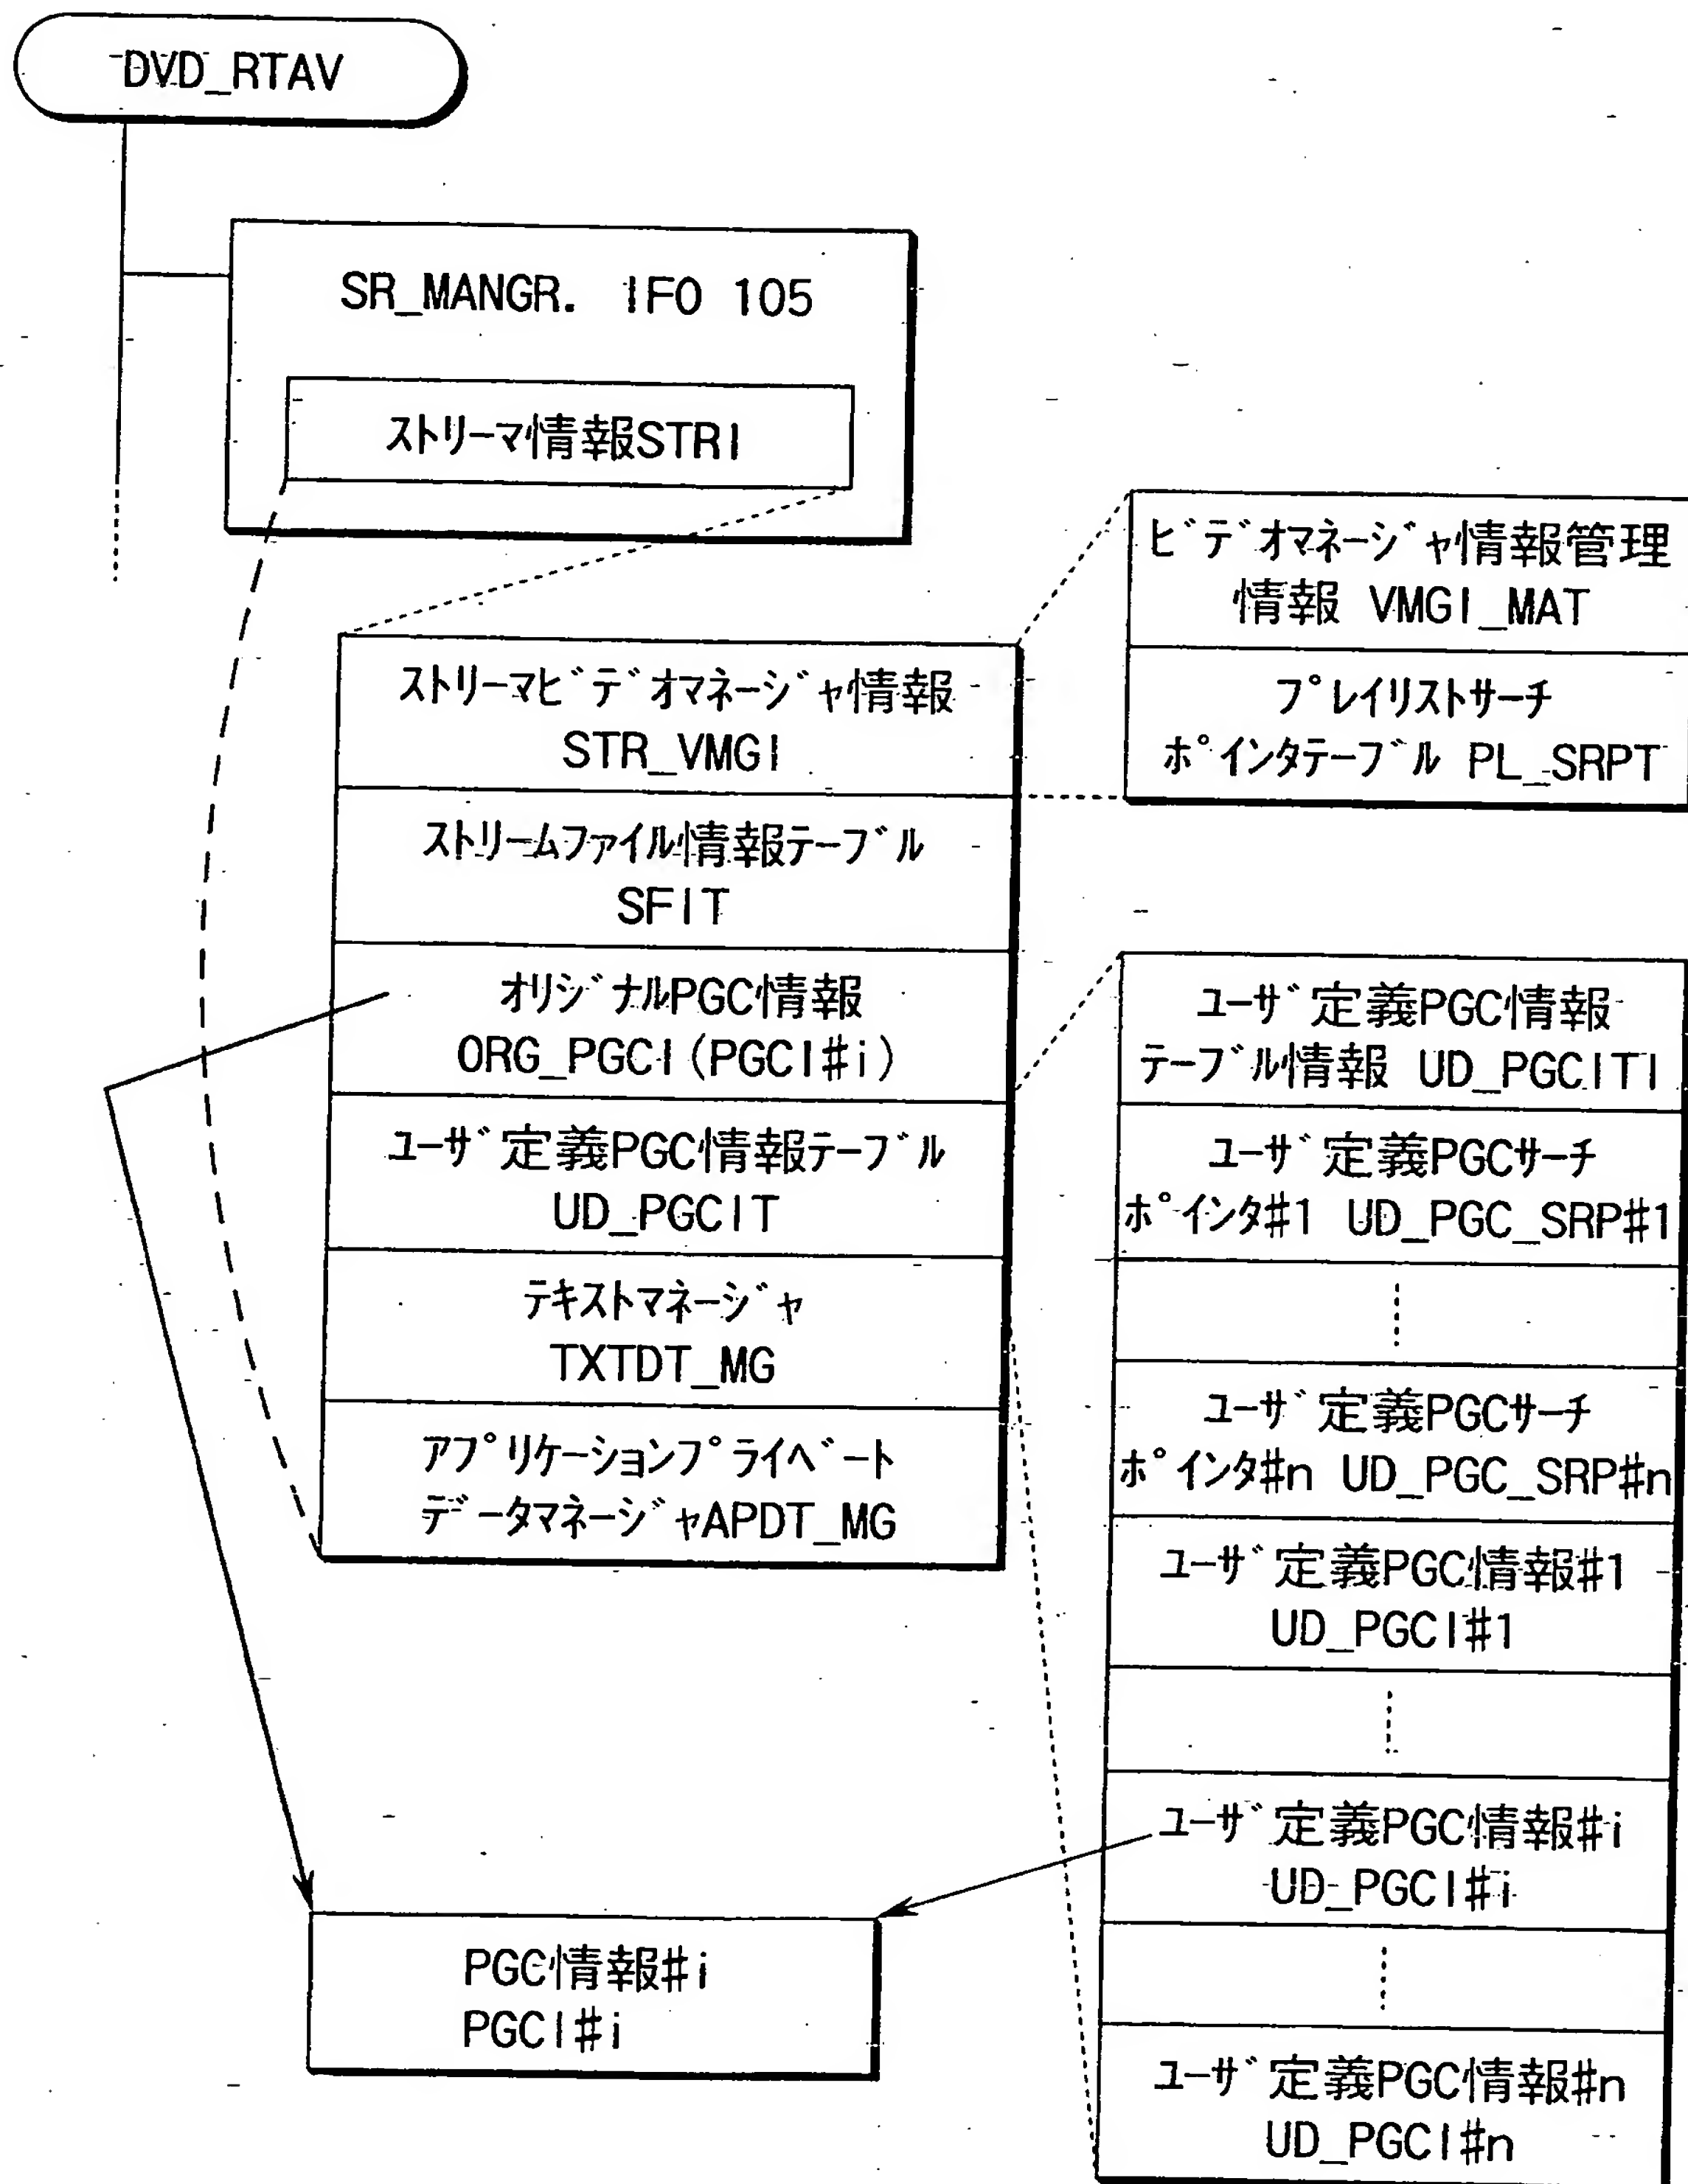 DVD_RTAV
SR_MANGR. IFO 105
ストリーマ情報STRI
ストリーマビデオマネージャ情報
STR_VMGI
ストリームファイル情報テーブル
SFIT
オリジナルPGC情報
ORG_PGCI(PGCI#i)
ユーザ定義PGC情報テーブル
UD_PGCIT
テキストマネージャ
TXTDT_MG
アプリケーションプライベート
データマネージャAPDT_MG
ビデオマネージャ情報管理
情報 VMGI_MAT
プレイリストサーチ
ポインタテーブル PL_SRPT
ユーザ定義PGC情報
テーブル情報 UD_PGCITI
ユーザ定義PGCサーチ
ポインタ#1 UD_PGC_SRP#1
ユーザ定義PGCサーチ
ポインタ#n UD_PGC_SRP#n
ユーザ定義PGC情報#1
UD_PGCI#1
ユーザ定義PGC情報#i
UD_PGCI#i
ユーザ定義PGC情報#n
UD_PGCI#n
PGC情報#i
PGCI#i